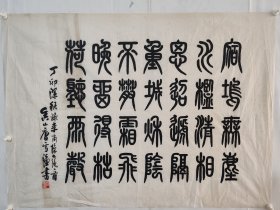 塢無塵
水檻清相
思迢遞隔
重城秋陰
不散霜飛
晚留得枯
荷聽雨聲
丁卯深秋錄李商隱
書